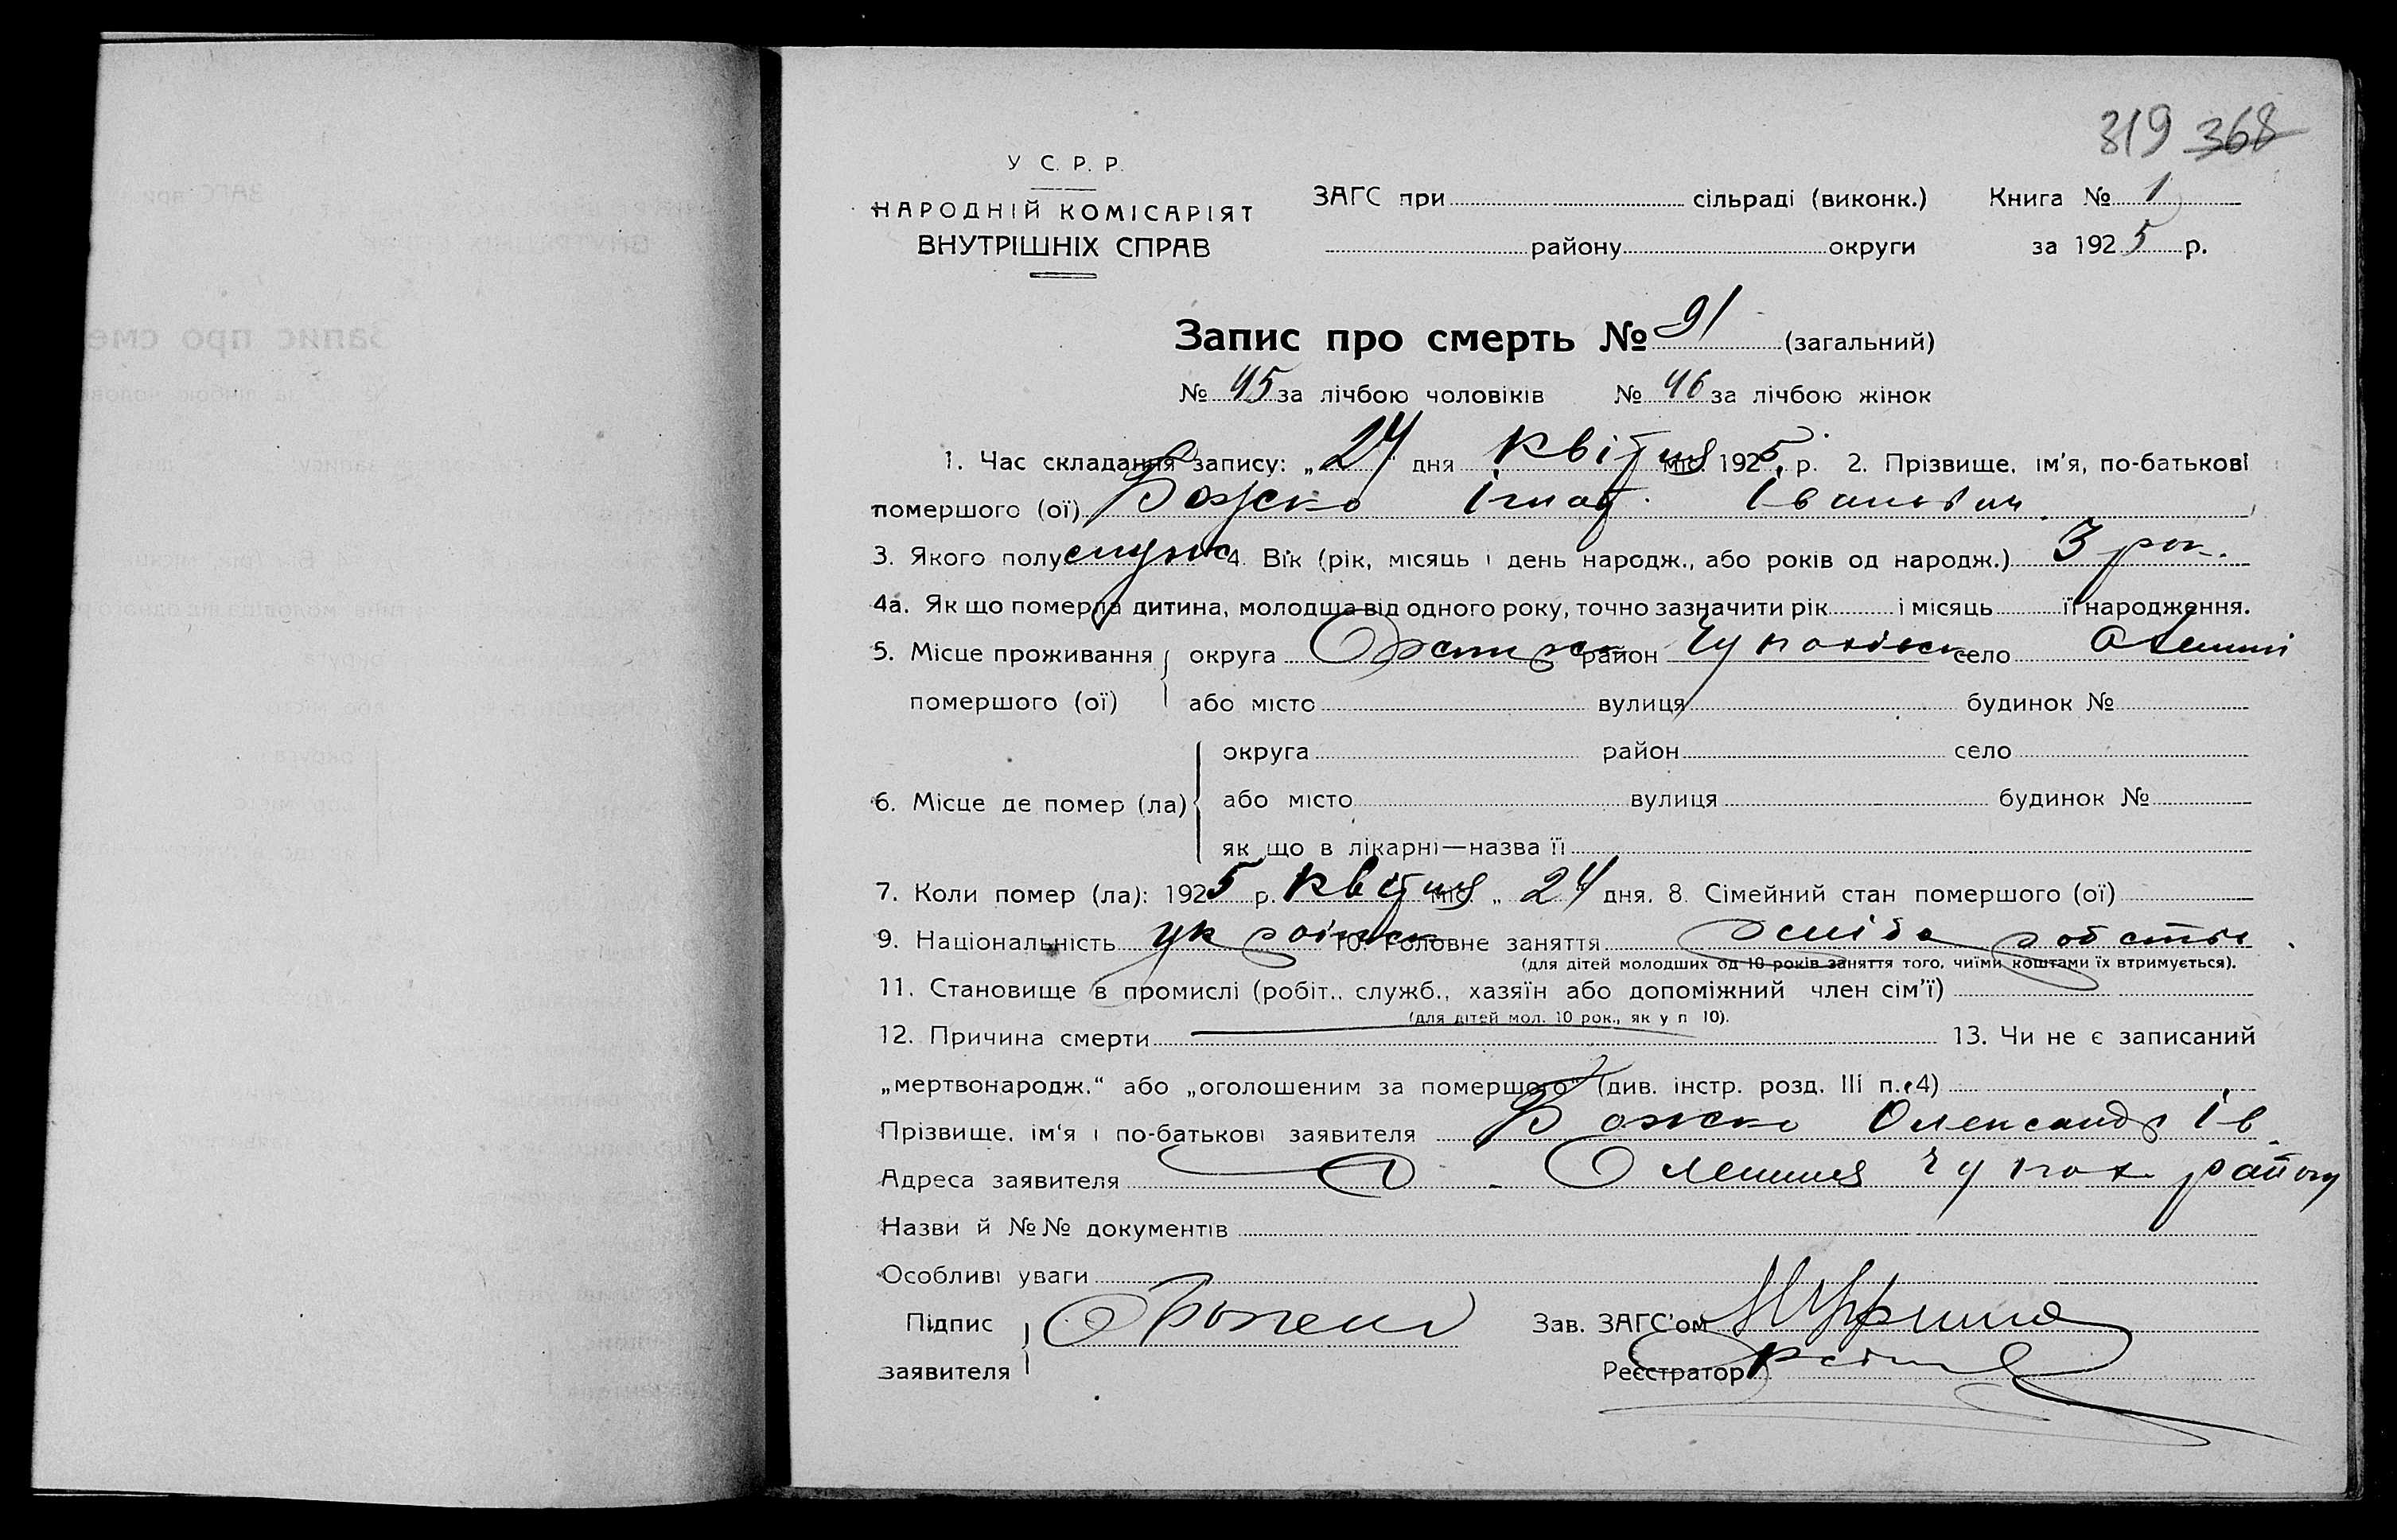 319 368
У С. Р. Р.
НАРОДНІЙ КОМІСАРІЯТ
ВНУТРІШНІХ СПРАВ
ЗАГС при сільраді (виконк.)
району округи
Книга № 1
за 1925 р.
Запис про смерть № 91 (загальний)
№ 45 за лічбою чоловіків № 46 за лічбою жінок
1. Час складання запису: „24" дня квітня міс. 1925 р. 2. Прізвище, ім'я, по-батькові
помершого (ої) Божко Ігнат Іванович
3. Якого полу 4. Вік (рік, місяць і день народж., або років од народж.) 3 рок.
4а. Як що померла дитина, молодша від одного року, точно зазначити рік і місяць її народження.
5. Місце проживання округа район село
помершого (ої) або місто вулиця будинок №
округа район село
6. Місце де помер (ла) або місто вулиця будинок №
як що в лікарні—назва її
7. Коли помер (ла): 1925 р. квітня міс. „ 24 дня. 8. Сімейний стан помершого (ої)
9. Національність україньск 10. Головне заняття
(для дітей молодших од 10 років заняття того, чиїми коштами їх втримується).
11. Становище в промислі (робіт., служб., хазяїн або допоміжний член сім'ї)
(для дітей мол. 10 рок., як у п 10).
12. Причина смерти 13. Чи не є записаний
„мертвонародж.“ або „оголошеним за помершого“ (див. інстр. розд. III п. 4)
Прізвище, ім'я і по-батькові заявителя Божко Олександр Ів.
Адреса заявителя Олешня району
Назви й №№ документів
Особливі уваги
Підпис
заявителя
Зав. ЗАГС'ом
Реєстратор